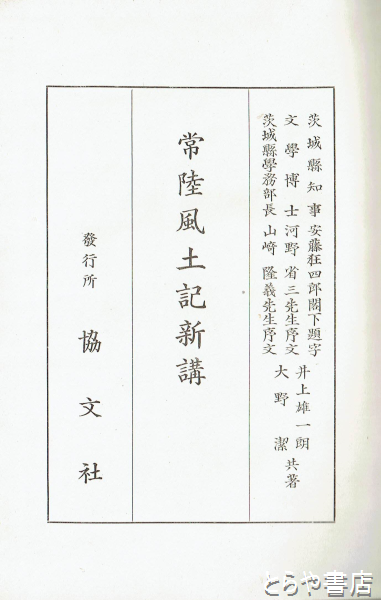 茨城縣知事安藤狂四郎閣下題字
文學博士河野省三先生序文
茨城縣學務部長山崎隆義先生序文
井上雄一朗
大野潔
共著
常陸風土記新講
發行所 協文社
とらや書店